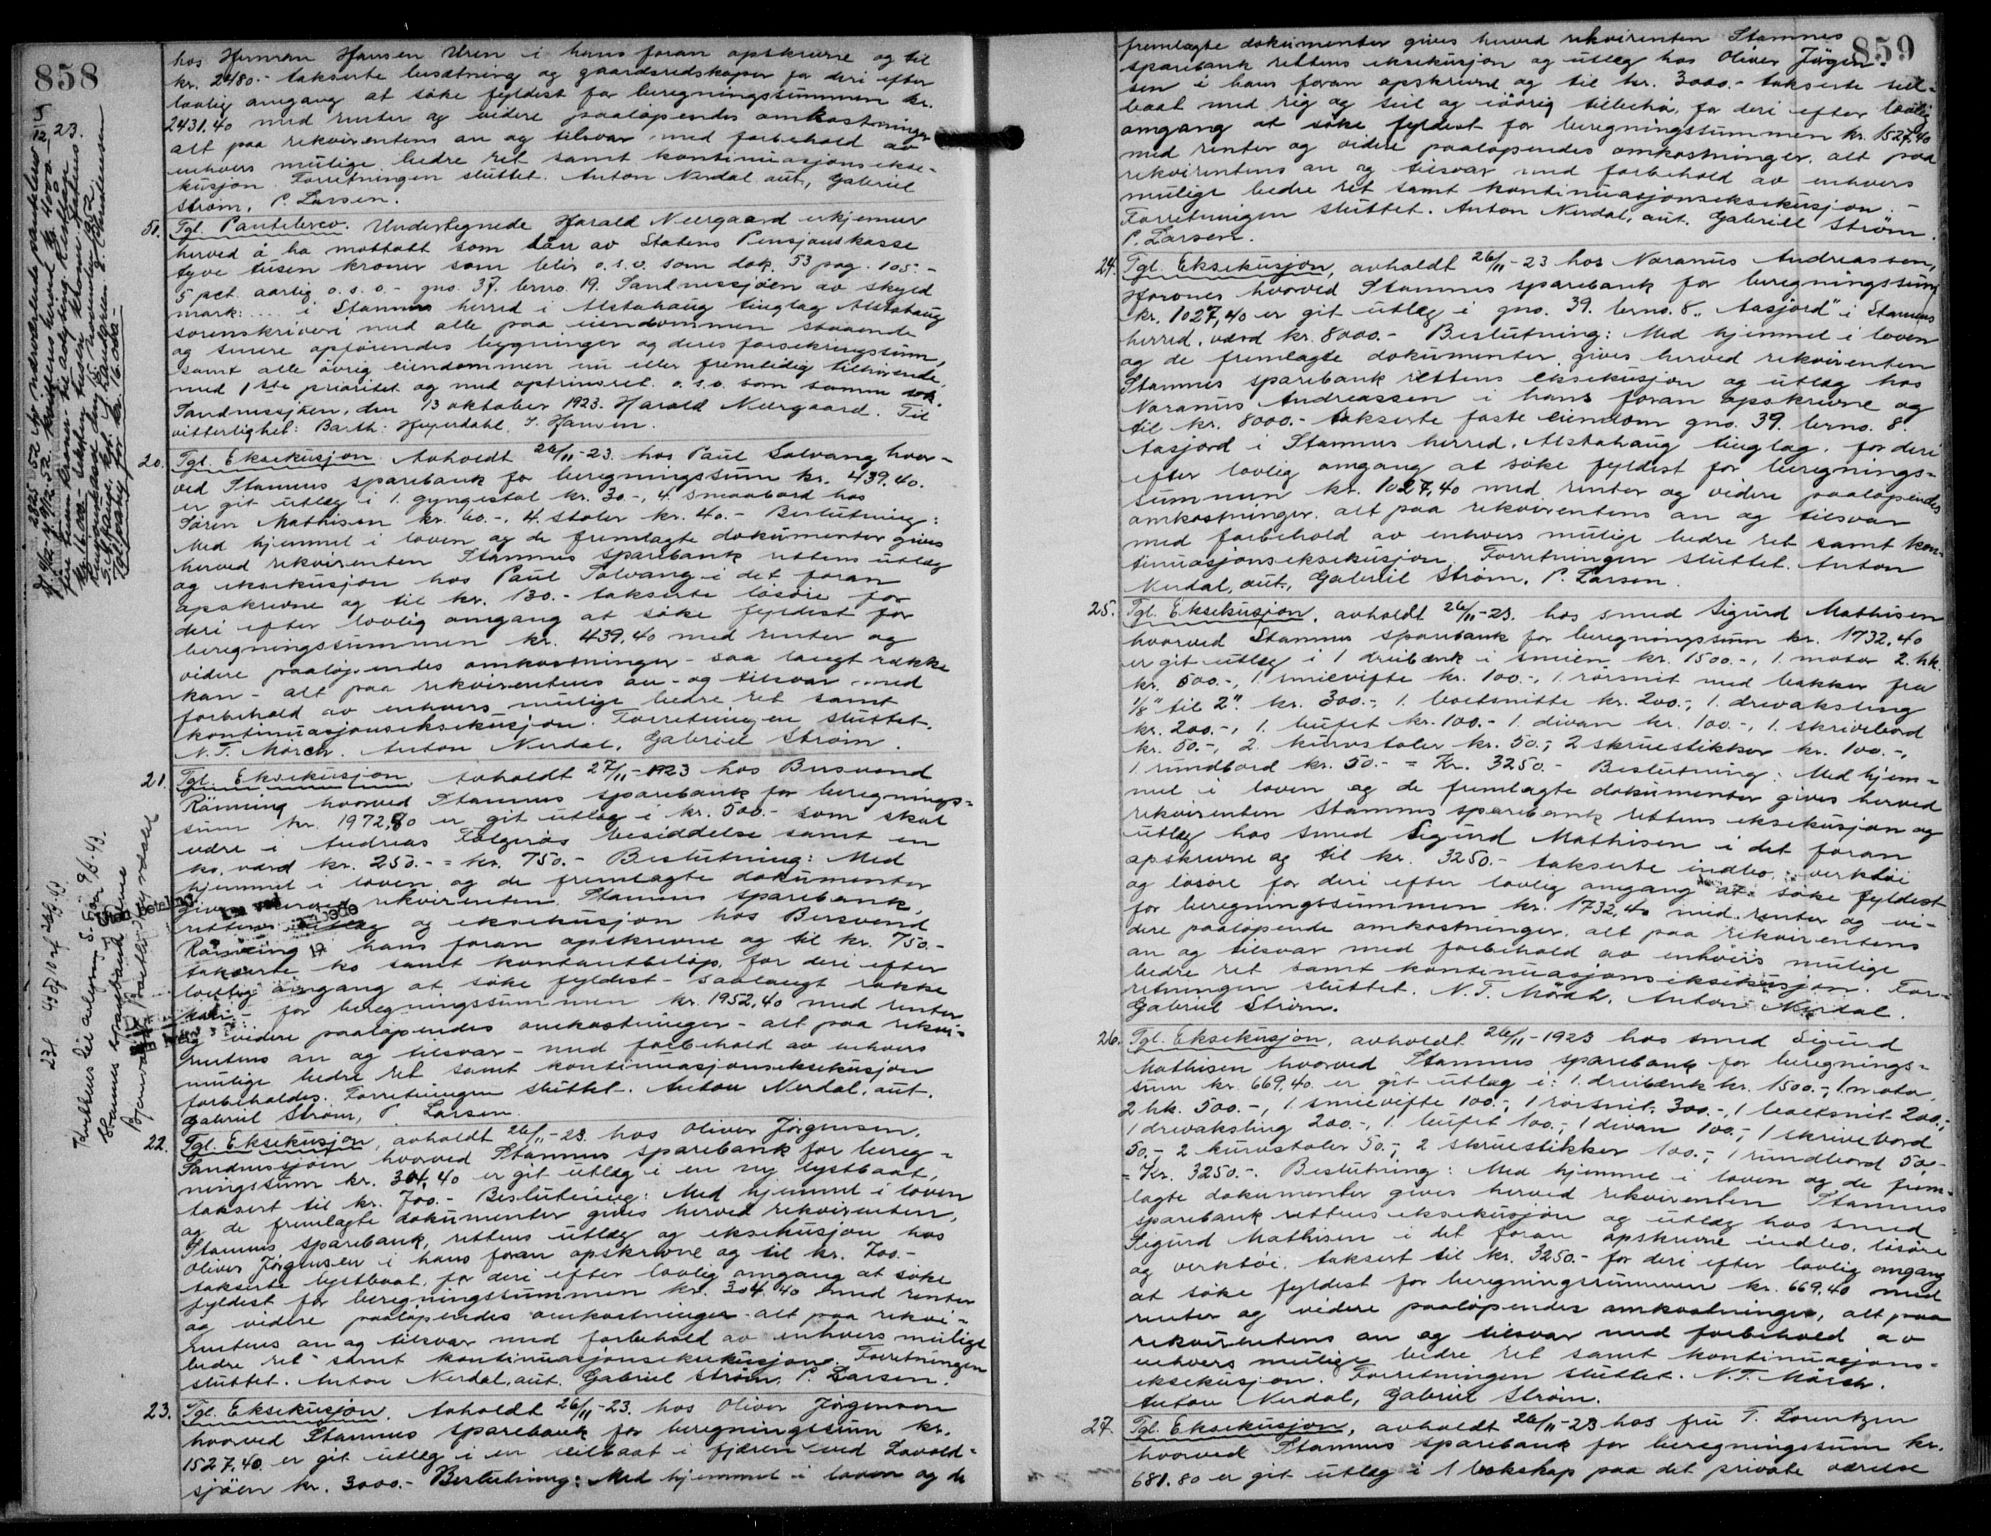 858
5/12 23.
hos Herman Hansen Uren i hans foran opskrevne og til
kr. 2480.- takserte besætning og gaardsredskaper for deri efter
lovlig omgang at söke fyldest for beregningssummen kr.
2431.40 med renter og videre paaløpendes omkostninger
alt paa rekvirentens an og tilsvar med forbehold av
enhvers mulige bedre ret samt kontinuasjonsekse-
kusjon. Forretningen sluttet. Anton Nerdal aut, Gabriel
Strøm, P. Larsen.
51. Tgl. Pantebrev. Undertegnede Harald Neergaard erkjenner
herved å ha mottatt som lån av Statens Pensjonskasse
tyve tusen kroner som blir o.s.v. som dok. 53 pag. 105.-
5 pct. aarlig o.s.v.- gno. 37. brno. 19. Sandnessjøen av skyld
mark: .... i Stamnes herred i Alstahaug tinglag Alstahaug
sorenskriveri med alle paa eiendommen staaende
og senere opförendes bygninger og deres forsekringssum,
samt alle övrig eiendommen nu eller fremtidig tilhörende,
med 1ste prioritet og med optrinsret. o.s.v. som samme dok.
Sandnessjöen, den 13 oktober 1923. Harald Neergaard. Til
vitterlighet: Barth: Heyerdahl, J. Hansen.
20. Tgl. Eksekusjon. Avholdt 26/11-23. hos Paul Solvang hvor-
ved Stamnes sparebank for beregningssum kr. 439.40.
er git utlæg i 1. gyngestol kr. 30.-, 4. smaabord hos
Sören Mathisen kr. 60.-, 4. stoler kr. 40.- Beslutning:
Med hjemmel i loven og de fremlagte dokumenter gives
herved rekvirenten Stamnes sparebank rettens utlæg
og eksekusjon hos Paul Solvang i det foran
opskrevne og til kr. 130.- takserte lösöie for
deri efter lovlig omgang at söke fyldest for
beregningssummen kr. 439.40 med renter og
videre paaløpendes omkostninger - saa langt række
kan - alt paa rekvirentens an- og tilsvar med
forbehold av enhvers mulige bedre ret samt
kontinuasjonseksekusjon. Forretningen sluttet.
N.T. Mörch. Anton Nerdal, Gabriel Strøm.
21. Tgl. Eksekusjon, avholdt 27/11-1923 hos Bersvend
Rönning hvorved Stamnes sparebank for beregnings-
sum kr. 1972,80 er git utlæg i kr. 500.- som skal
være i Andreas Falgrøs besiddelse samt en
ko, værd kr. 250.- = kr. 750.- Beslutning: Med
hjemmel i loven og de fremlagte dokumenter
gives herved rekvirenten Stamnes sparebank,
rettens utlæg og eksekusjon hos Bersvend
Rönning i hans foran opskrevne og til kr. 750.-
takserte ko samt kontantbeløp, for deri efter
lovlig omgang at söke fyldest - saalangt række
kan - for beregningssummen kr. 1952,40 med renter
og videre paaløpendes omkostninger - alt paa rekvi-
rentens an og tilsvar - med forbehold av enhvers
mulige bedre ret samt kontinuasjonseksekusjon
forbeholdes. Forretningen sluttet. Anton Nerdal, aut.
Gabriel Strøm, P. Larsen.
22. Tgl. Eksekusjon, avholdt 26/11-23. hos Oliver Jørgensen,
Sandnessjöen hvorved Stamnes sparebank for bereg-
ningssum kr. 304,40 er git utlæg i en ny lystbaat,
taksert til kr. 700.- Beslutning: Med hjemmel i loven
og de fremlagte dokumenter gives herved rekvirenten,
Stamnes sparebank, rettens utlæg og eksekusjon hos
Oliver Jørgensen i hans foran opskrevne og til kr. 700.-
takserte lystbaat, for deri efter lovlig omgang at söke
fyldest for beregningssummen kr. 304.40 med renter
og videre paaløpendes omkostninger alt paa rekvi-
rentens an og tilsvar med forbehold av enhvers mulige
bedre ret samt kontinuasjonseksekusjon. Forretningen
sluttet. Anton Nerdal, aut. Gabriel Strøm, P. Larsen.
23. Tgl. Eksekusjon. Avholdt 26/11-23. hos Oliver Jørgensen
hvorved Stamnes sparebank for beregningssum kr.
1527,40. er git utlæg i en seilbaat i fjæren ved
sjöen kr. 3000.- Beslutning: Med hjemmel i loven og de
859
fremlagte dokumenter gives herved rekvirenten Stamnes
sparebank rettens eksekusjon og utlæg hos Oliver Jørgen-
sen i hans foran opskrevne og til kr. 3000.- takserte seil-
baat med rig og seil og iövrig tilbehör, for deri efter lovlig
omgang at söke fyldest for beregningssummen kr. 1527,40
med renter og videre paaløpendes omkostninger, alt paa
rekvirentens an og tilsvar med forbehold av enhvers
mulige bedre ret samt kontinuasjonseksekusjon. -
Forretningen sluttet. Anton Nerdal, aut. Gabriel Strøm.
P. Larsen.
24. Tgl. Eksekusjon, avholdt 26/11-23 hos Noranus Andreassen,
hvorved Stamnes sparebank for beregningssum
kr. 1027,40 er git utlæg i gno. 39. brno. 8. "Aasjord" i Stamnes
herred, værd kr. 8000.- Beslutning: Med hjemmel i loven
og de fremlagte dokumenter gives herved rekvirenten
Stamnes sparebank rettens eksekusjon og utlæg hos
Noranus Andreassen i hans foran opskrevne og
til kr. 8000.- takserte faste eiendom gno. 39. brno. 8
Aasjord i Stamnes herred, Alstahaug tinglag, for deri
efter lovlig omgang at söke fyldest for beregnings-
summen kr. 1027,40 med renter og videre paaløpendes
omkostninger, alt paa rekvirentens an og tilsvar
med forbehold av enhvers mulige bedre ret samt kon-
tinuasjonseksekusjon. Forretningen sluttet. Anton
Nerdal, aut., Gabriel Strøm, P. Larsen.
25. Tgl. Eksekusjon, avholdt 26/11-23. hos smed Sigurd Mathisen
hvorved Stamnes sparebank for beregningssum kr. 1732,40
er git utlæg i 1 dreibænk i smien kr. 1500.-, 1. motor 2. hk.
kr. 500.-, 1. smievifte kr. 100.-, 1. rörsnit med bakker fra
1/8" til 2" kr. 300.-, 1. boltsnitte kr. 200.-, 1. drevaksling
kr. 200.-, 1. bufet kr. 100.- 1. divan kr. 100.-, 1. skrivebord
kr. 50.-, 2. kurvstoler kr. 50.-, 2 skruestikker kr. 100.-,
1 rundbord kr. 50.- = Kr. 3250.- Beslutning: Med hjem-
mel i loven og de fremlagte dokumenter gives herved
rekvirenten Stamnes sparebank rettens eksekusjon og
utlæg hos smed Sigurd Mathisen i det foran
opskrevne og til kr. 3250.- takserte indbo, verktöi
og lösöre for deri efter lovlig omgang at söke fyldest
for beregningssummen kr. 1732,40 med renter og vi-
dere paaløpende omkostninger, alt paa rekvirentens
an og tilsvar med forbehold av enhvers mulige
bedre ret samt kontinuasjonseksekusjon. For-
retningen sluttet. N.T. Mörch, Anton Nerdal.
Gabriel Strøm.
26. Tgl. Eksekusjon, avholdt 26/11-1923 hos smed Sigurd
Mathisen hvorved Stamnes sparebank for beregnings-
sum kr. 669,40. er git utlæg i: 1. dreibænk kr. 1500.-, 1 motor
2 hk. 500.-, 1. smievifte 100.-, 1 rörsnit, 300.-, 1 boltsnit 200.-,
1 drevaksling 200.-, 1. bufet 100.-, 1 divan 100.-, 1 skrivebord
50.-, 2 kurvstoler 50.-, 2 skruestikker 100.-, 1 rundbord 50.-
= Kr. 3250.-. Beslutning: Med hjemmel i loven og de frem-
lagte dokumenter gives herved rekvirenten Stamnes
sparebank rettens eksekusjon og utlæg hos smed
Sigurd Mathisen i det foran opskrevne indbo, lösöre
og verktöi, taksert til kr. 3250.- for deri efter lovlig omgang
at söke fyldest for beregningssummen kr. 669.40 med
renter og videre paaløpendes omkostninger, alt paa
rekvirentens an og tilsvar med forbehold av
enhvers mulige bedre ret samt kontinuasjons-
eksekusjon. Forretningen sluttet. N.T. Mörch.
Anton Nerdal, Gabriel Strøm.
27. Tgl. Eksekusjon, avholdt 26/11-23 hos fru T. Lorentzen
hvorved Stamnes sparebank for beregningssum kr.
681.80 er git utlæg i 1 bokskap paa det private værelse